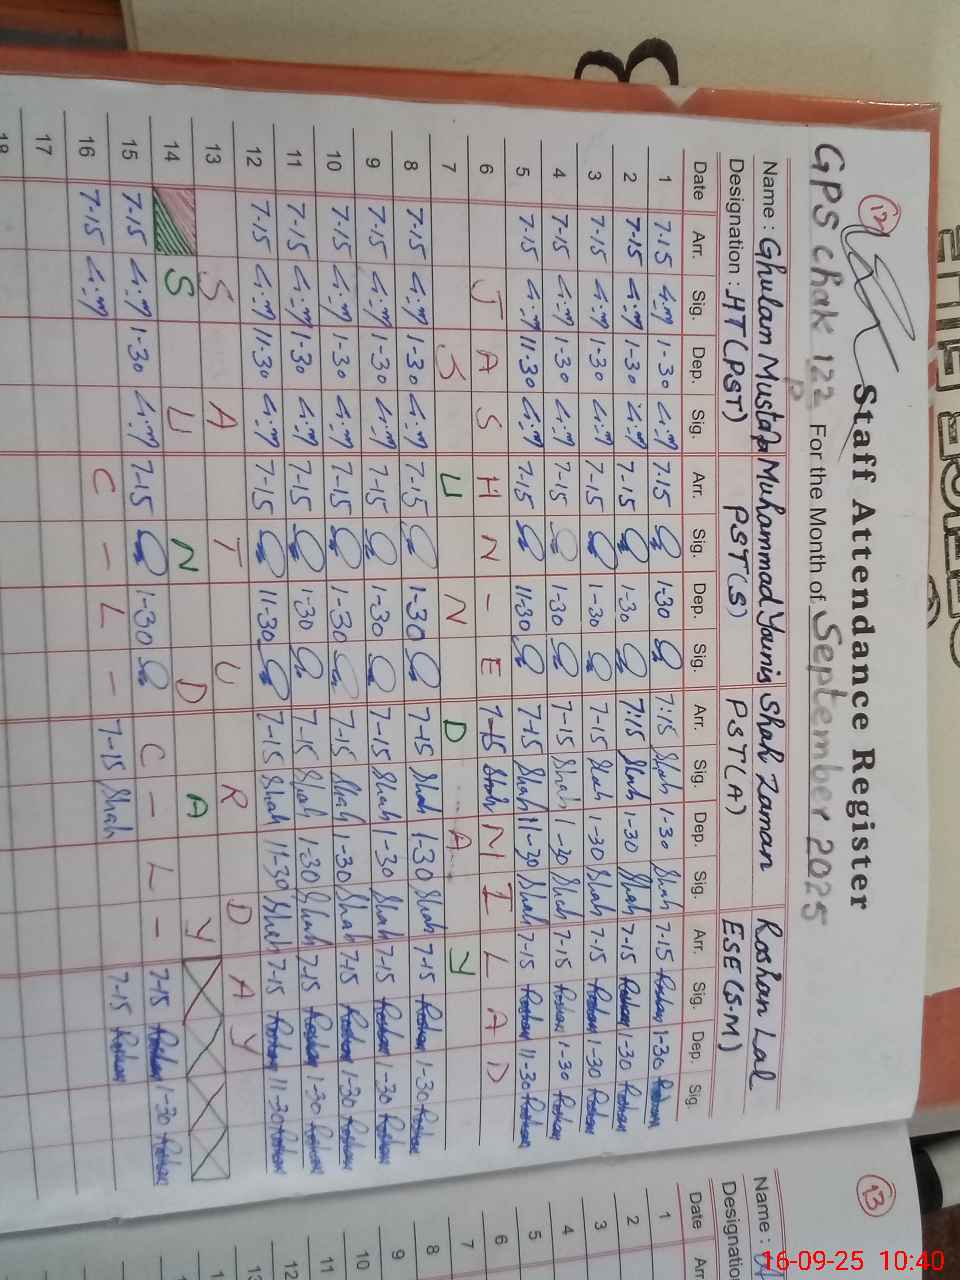 12
Staff Attendance Register
GPS chak 122 P For the Month of September 2025
Name : Ghulam Mustafa Muhammad Younis Shah Zaman Roshan Lal
Designation : HT(PST) PST(S) PST(A) ESE(S-M)
Date Arr. Sig. Dep. Sig. Arr. Sig. Dep. Sig. Arr. Sig. Dep. Sig. Arr. Sig. Dep. Sig.
1 7-15 G.M 1-30 G.M 7-15 1-30 7:15 Shah 1-30 Shah 7-15 Roshan 1-30 Roshan
2 7-15 G.M 1-30 G.M 7-15 1-30 7:15 Shah 1-30 Shah 7-15 Roshan 1-30 Roshan
3 7-15 G.M 1-30 G.M 7-15 1-30 7-15 Shah 1-30 Shah 7-15 Roshan 1-30 Roshan
4 7-15 G.M 1-30 G.M 7-15 1-30 7-15 Shah 1-30 Shah 7-15 Roshan 1-30 Roshan
5 7-15 G.M 11-30 G.M 7-15 11-30 7-15 Shah 11-30 Shah 7-15 Roshan 11-30 Roshan
6 J A S H N - E 7-15 Shah M I L A D
7 S U N D A Y
8 7-15 G.M 1-30 G.M 7-15 1-30 7-15 Shah 1-30 Shah 7-15 Roshan 1-30 Roshan
9 7-15 G.M 1-30 G.M 7-15 1-30 7-15 Shah 1-30 Shah 7-15 Roshan 1-30 Roshan
10 7-15 G.M 1-30 G.M 7-15 1-30 7-15 Shah 1-30 Shah 7-15 Roshan 1-30 Roshan
11 7-15 G.M 1-30 G.M 7-15 1-30 7-15 Shah 1-30 Shah 7-15 Roshan 1-30 Roshan
12 7-15 G.M 11-30 G.M 7-15 11-30 7-15 Shah 11-30 Shah 7-15 Roshan 11-30 Roshan
13 S A T U R D A Y
14 S U N D A Y
15 7-15 G.M 1-30 G.M 7-15 1-30 C - L - 7-15 Roshan 1-30 Roshan
16 7-15 G.M C - L - 7-15 Shah 7-15 Roshan
17
18
13
Name :
Designation
Date Arr
1
2
3
4
5
6
7
8
9
10
11
12
16-09-25 10:40